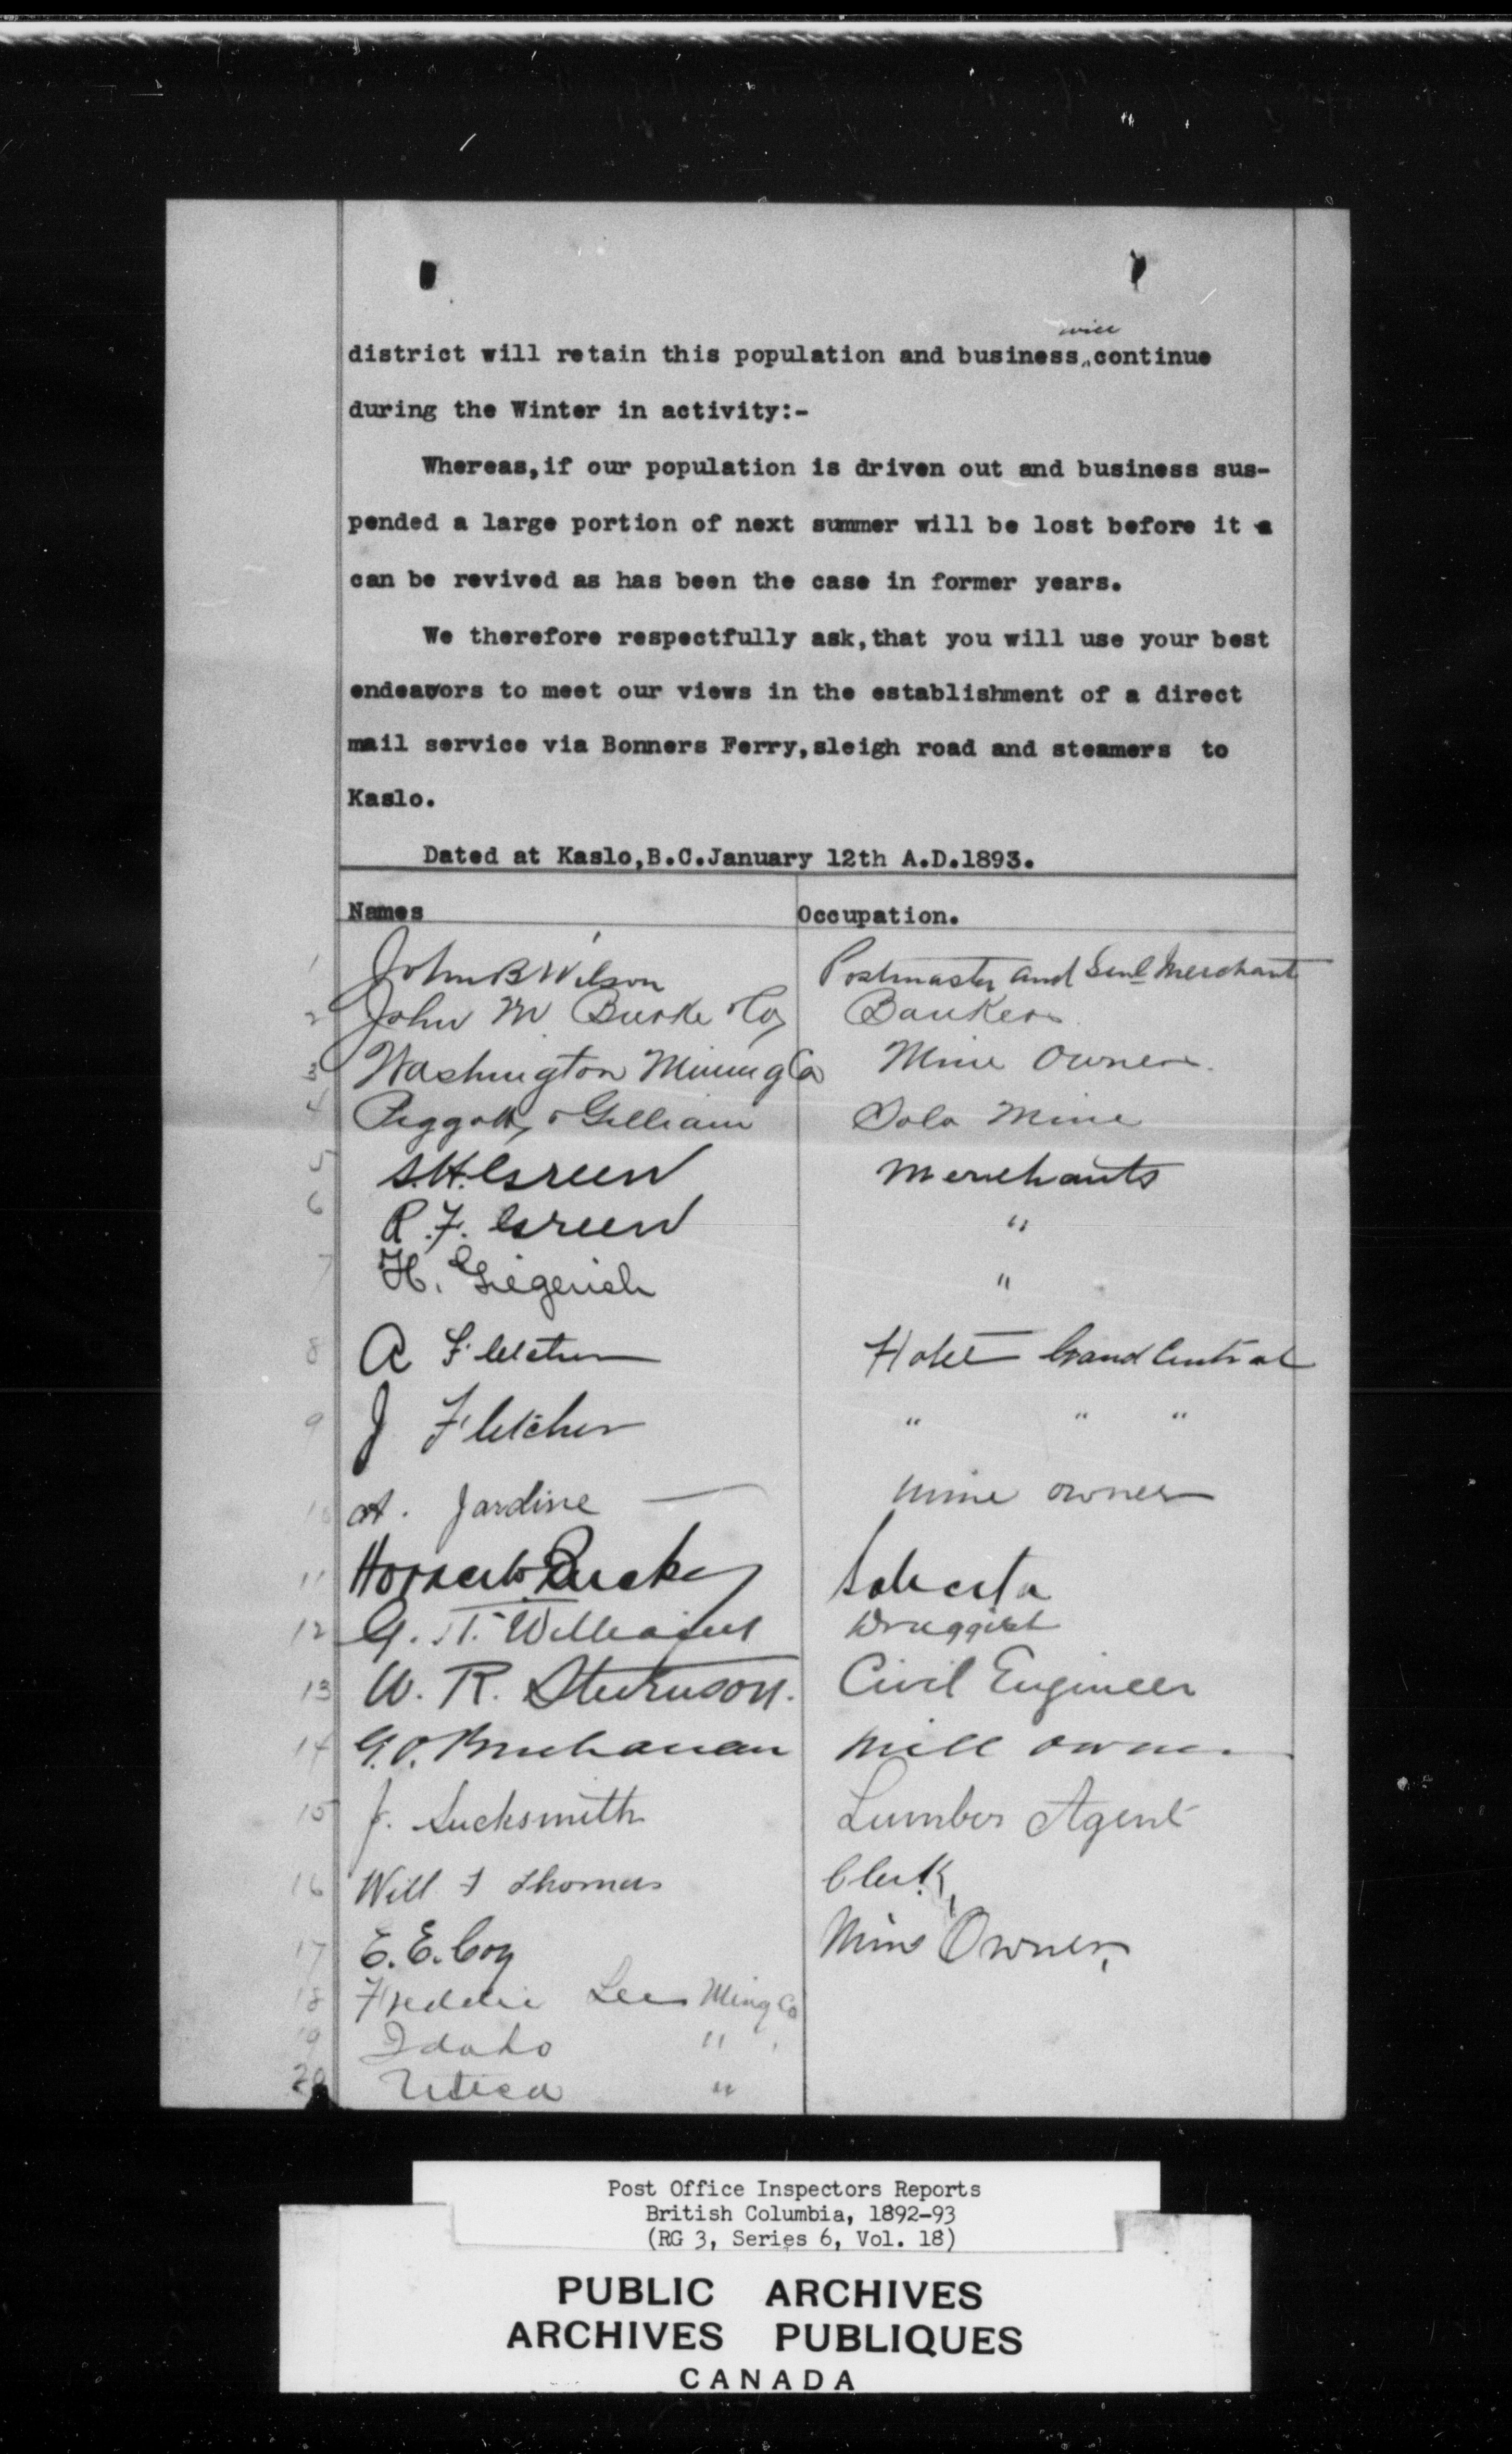 will
district will retain this population and business,^continue
during the Winter in activity:-
Whereas,if our population is driven out and business sus-
pended a large portion of next summer will be lost before it a
can be revived as has been the case in former years.
We therefore respectfully ask,that you will use your best
endeavors to meet our views in the establishment of a direct
mail service via Bonners Ferry,sleigh road and steamers to
Kaslo.
Dated at Kaslo,B.C.January 12th A.D.1893.
Names Occupation.
1 John B Wilson Postmaster and Genl Merchant
2 John M Burke & Co Bankers
3 Washington Mining Co Mine Owners.
4 Piggott & Gilliam Mine
5 S.H. Green Merchants
6 R.F. Green "
7 H. Giegerich "
8 A Fletcher Hotel Grand Central
9 J Fletcher " " "
10 A. Jardine — mine owner
11
12 G. T. Williams Druggist
13 W. R. Stevenson. Civil Engineer
14 G.O. Buchanan Mill owner
15 J. Sucksmith Lumber Agent
16 Will F Thomas Clerk
17 E.E. Coy Mine Owner,
18 Freddie Lee Ming Co
19 Idaho "
20 Utica "
Post Office Inspectors Reports
British Columbia, 1892-93
(RG 3, Series 6, Vol. 18)
PUBLIC ARCHIVES
ARCHIVES PUBLIQUES
CANADA